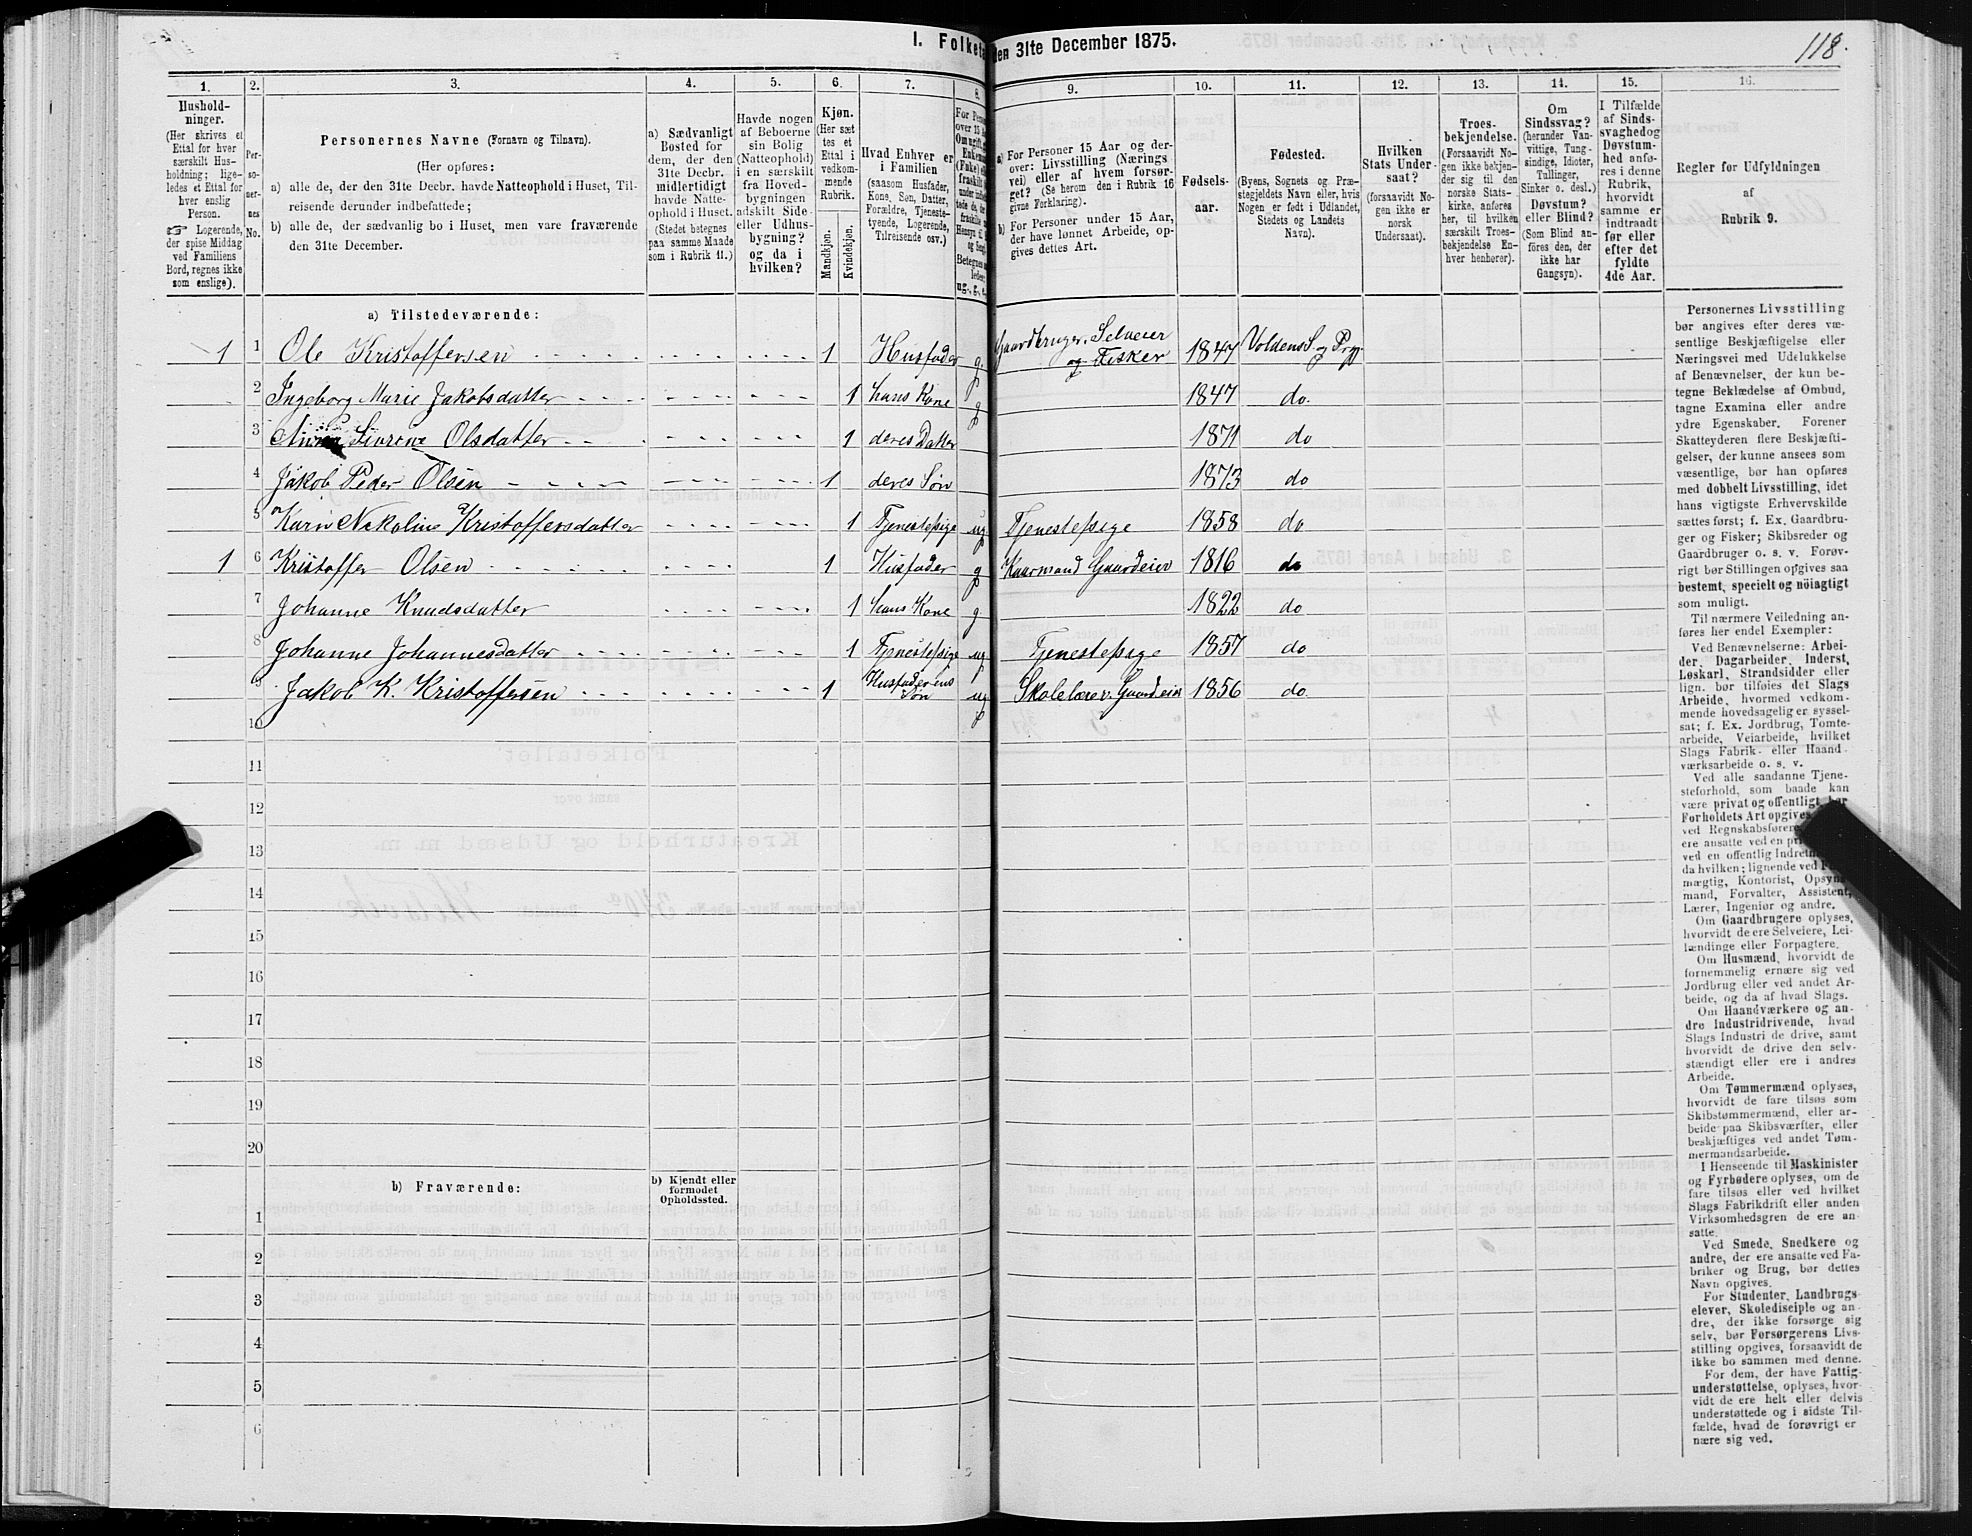 I. Folketa den 31te December 1875.
118.
1.
2.
3.
4.
5.
6.
7.
8.
9.
10.
11.
12.
13.
14.
15.
16.
Hushold-
ninger.
(Her skrives et
Ettal for hver
særskilt Hus-
holdning; lige-
ledes et Ettal for
hver enslig
Person.
☞ Logerende,
der spise Middag
ved Familiens
Bord, regnes ikke
som enslige).
Per-
so-
ner-
nes
No.
Personernes Navne (Fornavn og Tilnavn).
(Her opføres:
a) alle de, der den 31te Decbr. havde Natteophold i Huset, Til-
reisende derunder indbefattede;
b) alle de, der sædvanlig bo i Huset, men vare fraværende
den 31te December.
a) Sædvanligt
Bosted for
dem, der den
31te Decbr.
midlertidigt
havde Natte-
ophold i Huset.
(Stedet betegnes
paa samme Maade
som i Rubrik 11.)
Havde nogen
af Beboerne
sin Bolig
(Natteophold)
i en særskilt
fra Hoved-
bygningen
adskilt Side-
eller Udhus-
bygning?
og da i
hvilken?
Kjøn.
(Her sæt-
tes et
Ettal i
vedkom-
mende
Rubrik.
Mandkjøn.
Kvindekjøn.
Hvad Enhver er
i Familien
(saasom Husfader,
Kone, Søn, Datter,
Forældre, Tjeneste-
tyende, Logerende,
Tilreisende osv.)
ug., g., e.,
a) For Personer 15 Aar og der-
over: Livsstilling (Nærings
vei) eller af hvem forsør-
get? (Se herom den i Rubrik 16
givne Forklaring).
b) For Personer under 15 Aar,
der have lønnet Arbeide, op-
gives dettes Art.
Fødsels-
aar.
Fødested.
(Byens, Sognets og Præ-
stegjeldets Navn eller, hvis
Nogen er født i Udlandet,
Stedets og Landets
Navn).
Hvilken
Stats Under-
saat?
(forsaavidt No-
gen ikke er
norsk
Undersaat).
Troes-
bekjendelse.
(Forsaavidt No-
gen ikke bekjen-
der sig til den
norske Stats-
kirke, anføres
her, til hvilken
særskilt Troes-
bekjendelse En-
hver henhører).
Om
Sindssvag?
(herunder Van-
vittige, Tung-
sindige, Idioter,
Tullinger,
Sinker o. desl.)
Døvstum?
eller Blind?
(Som Blind an-
føres den, der
ikke har
Gangsyn).
I Tilfælde
af Sinds-
svaghedog
Døvstum-
hed anfø-
res i denne
Rubrik,
hvorvidt
samme er
indtraadt
før eller
efter det
fyldte
4de Aar.
Regler for Udfyldningen
af
Rubrik 9.
a) Tilstedeværende:
1 1 Ole Kristoffersen 1 Husfader g. Gaardbruger, Selveier
og Fisker 1847 Voldens S. og Prgj
2 Ingeborg Marie Jakobsdatter 1 hans Kone g 1847 do.
3 Anna Sivrine Olsdatter 1 deres Datter 1871 do
4 Jakob Peder Olsen 1 deres Søn 1873 do
5 Karn Nikoline Kristoffersdatter 1 Tjenestepige ug Tjenestepige 1858 do
1 6 Kristoffer Olsen 1 Husfader g Kaarmand Gaardeier 1816 do
7 Johanne Knudsdatter 1 hans Kone g. 1822 do
8 Johanne Johannesdatter 1 Tjenestepige ug Tjenestepige 1857 do
9 Jakob K. Kristoffersen 1 Husfaderens
Søn ug Skolelærer. Gaardeier 1856 do.
10
11
12
13
14
15
16
17
18
19
20
b) Fraværende:
b) Kjendt eller
formodet
Opholdssted.
1
2
3
4
5
6
Personernes Livsstilling
bør angives efter deres væ-
sentlige Beskjæftigelse eller
Næringsvei med Udelukkelse
af Benævnelser, der kun be-
tegne Beklædelse af Ombud,
tagne Examina eller andre
ydre Egenskaber. Forener
Skatteyderen flere Beskjæfti-
gelser, der kunne ansees som
væsentlige, bør han opføres
med dobbelt Livsstilling, idet
hans vigtigste Erhvervskilde
sættes først; f. Ex. Gaardbru-
ger og Fisker; Skibsreder og
Gaardbruger o. s. v. Forøv-
rigt bør Stillingen opgives saa
bestemt, specielt og nöiagtigt
som muligt.
Til nærmere Veiledning an-
føres her endel Exempler:
Ved Benævnelserne: Arbei-
der, Dagarbeider, Inderst,
Løskarl, Strandsidder eller
lign. bør tilføies det Slags
Arbeide, hvormed vedkom-
mende hovedsagelig er syssel-
sat; f. Ex. Jordbrug, Tomte-
arbeide, Veiarbeide, hvilket
Slags Fabrik- eller Haand-
værksarbeide o. s. v.
Ved alle saadanne Tjene-
steforhold, som baade kan
være privat og offentligt, bør
Forholdets Art opgives
ved Regnskabsfører
ere ansatte ved en
ved en offentlig Indretn
da hvilken; lignende ved F
mægtig, Kontorist, Opsyns
mand, Forvalter, Assistent,
Lærer, Ingeniør og andre.
Om Gaardbrugere oplyses,
hvorvidt de ere Selveiere, Lei-
lændinge eller Forpagtere.
Om Husmænd, hvorvidt de
fornemmelig ernære sig ved
Jordbrug eller ved andet Ar-
beide, og da af hvad Slags.
Om Haandværkere og an-
dre Industridrivende, hvad
Slags Industri de drive, samt
hvorvidt de drive den selv-
stændigt eller ere i andres
Arbeide.
Om Tømmermænd oplyses,
hvorvidt de fare tilsøs som
Skibstømmermænd, eller ar-
beide paa Skibsværfter, eller
beskjæftiges ved andet Tøm-
mermandsarbeide.
I Henseende til Maskinister
og Fyrbødere oplyses, om de
fare tilsøs eller ved hvilket
Slags Fabrikdrift eller anden
Virksomhedsgren de ere an-
satte.
Ved Smede, Snedkere og
andre, der ere ansatte ved Fa-
briker og Brug, bør dettes
Navn opgives.
For Studenter, Landbrugs-
elever, Skoledisciple og an-
dre, der ikke forsørge sig
selv, bør Forsørgerens Livs-
stilling opgives, forsaavidt de
ikke bo sammen med denne.
For dem, der have Fattig-
understøttelse, oplyses, hvor-
vidt de ere helt eller delvis
understøttede og i sidste Til-
fælde, hvad de forøvrigt er
nære sig ved.